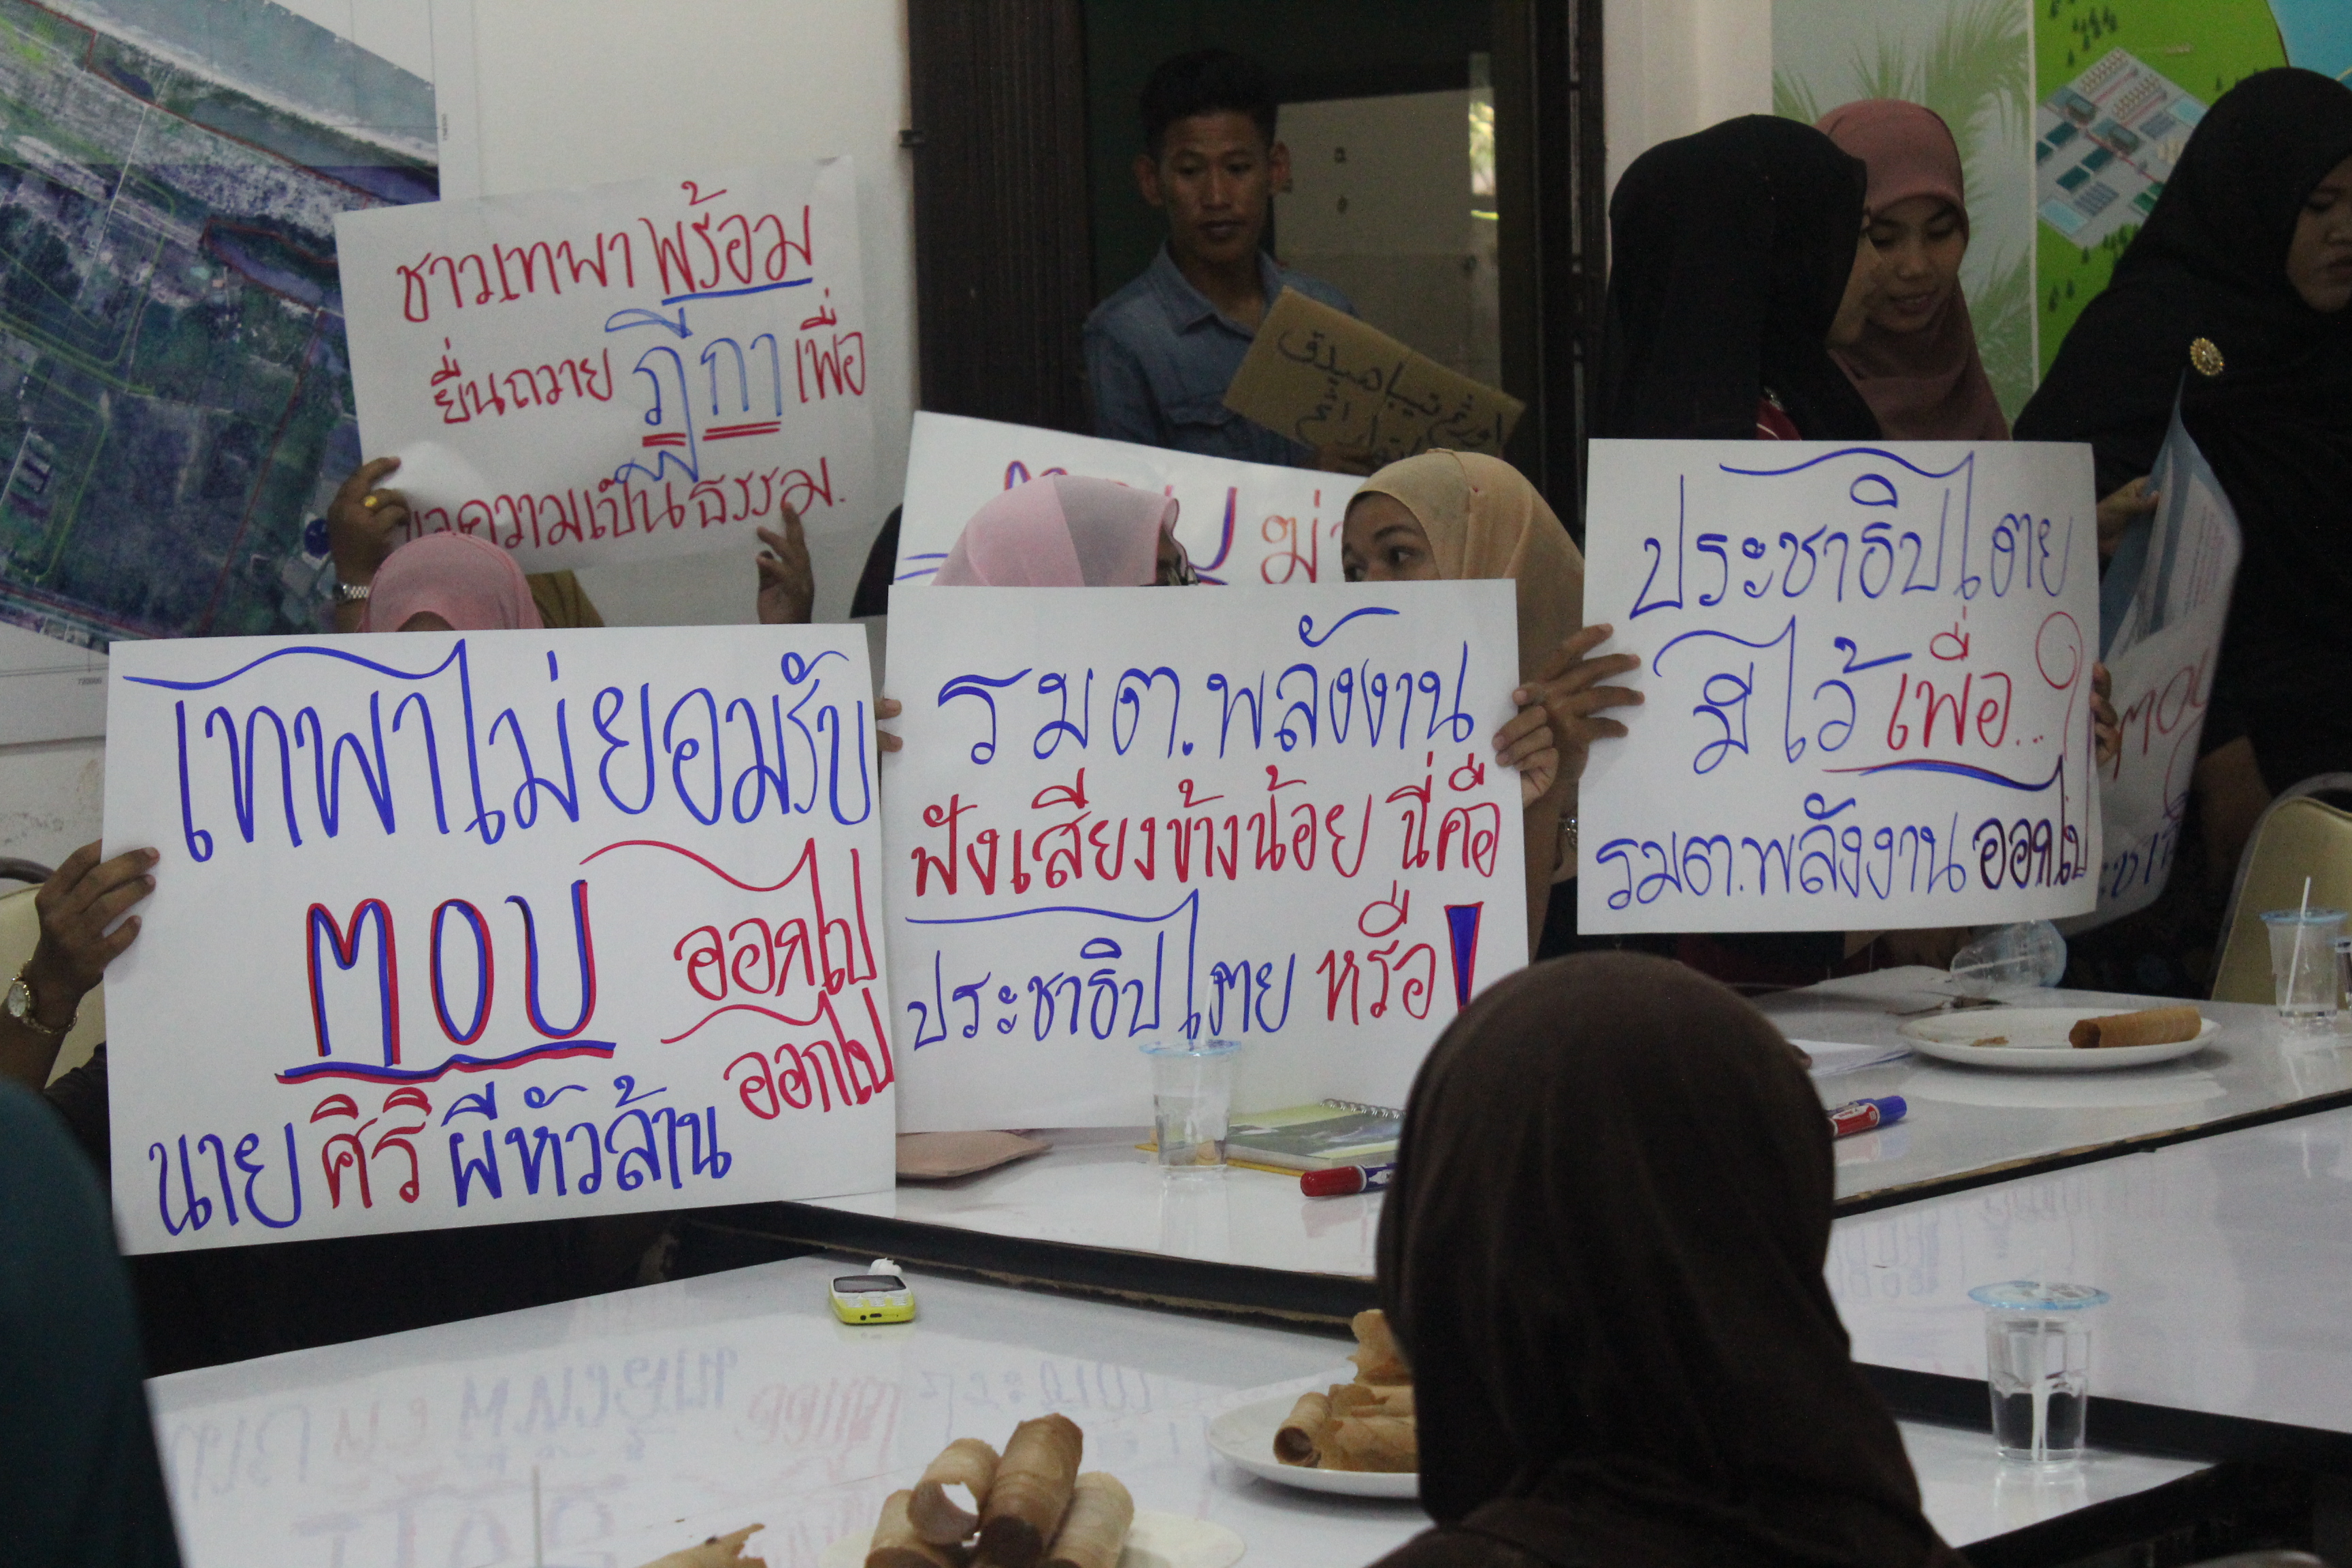 ชาวเทพาพร้อม
ยื่นถวาย ฎีกา เพื่อ
ความเป็นธรรม.
เทพาไม่ยอมรับ
MOU ออกไป
ออกไป
นาย ศิริ ผีหัวล้าน
รมต.พลังงาน
ฟังเสียงข้างน้อย นี่คือ
ประชาธิปไตย หรือ!
ประชาธิปไตย
มีไว้ เพื่อ...?
รมต.พลังงาน ออกไป
MOU